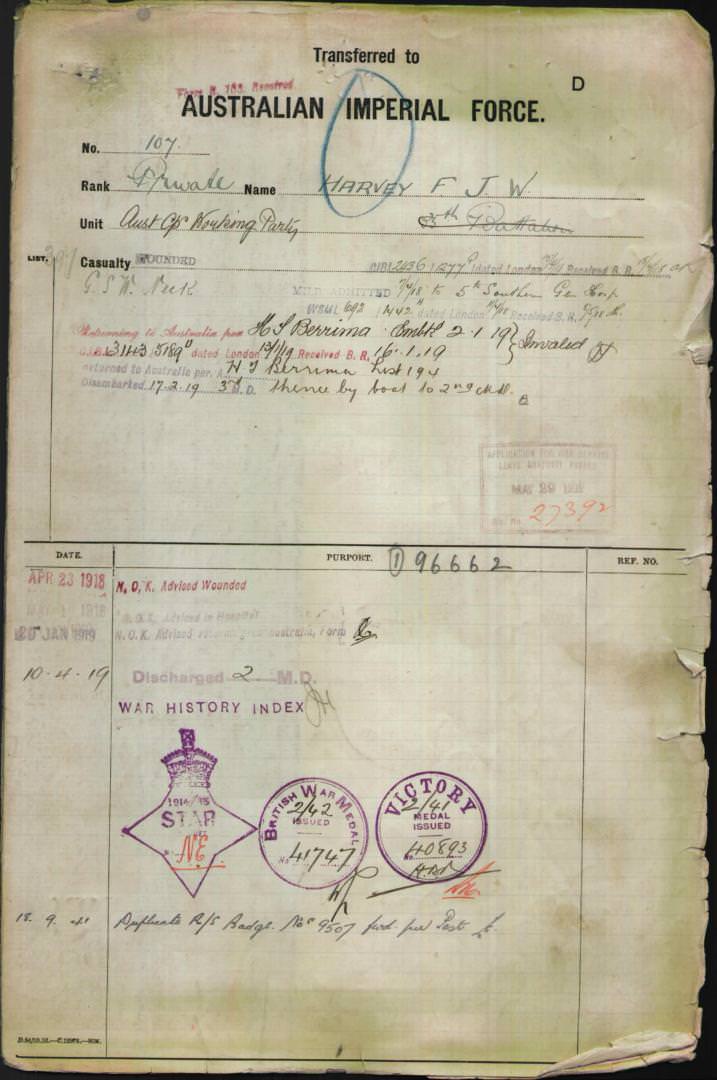 Transferred to
D
Form B. 103. Received.
AUSTRALIAN IMPERIAL FORCE.
No. 107.
Rank Private Name HARVEY F. J. W.
Unit Aust Cps Working Party 35th Battalion
LIST. Casualty WOUNDED
2436 1277 dated London Received B. R.
G.S.W. Neck MILD ADMITTED 7/4/18 to 5th Southern Gen Hosp
W3UL 692 1442" dated London Received B. R.
Returning to Australia per H T Berrima Embkd 2.1.19 } Invalided
3143 5189" dated London 13/1/19 Received B. R. 16.1.19
Returned to Australia per H T Berrima List 194
Disembarked 17.2.19 3rd M.D. thence by boat to 2nd M.D.
APPLICATION FOR WAR SERVICE
LEAVE GRATUITY PASSED
MAY 29
27392
DATE. PURPORT. REF. NO.
1 96662
APR 23 1918 N. O. K. Advised Wounded
MAY 1 1918 N. O. K. Advised in Hospital
20 JAN 1919 N. O. K. Advised returning Australia, Form
10.4.19 Discharged 2 M.D.
WAR HISTORY INDEX
1914/15
STAR
N.E.
BRITISH WAR MEDAL
2/42
ISSUED
No 41747
VICTORY
2/41
MEDAL
ISSUED
No. 40893
18.9.41 Duplicate R/S Badge No 9507 fwd per Post